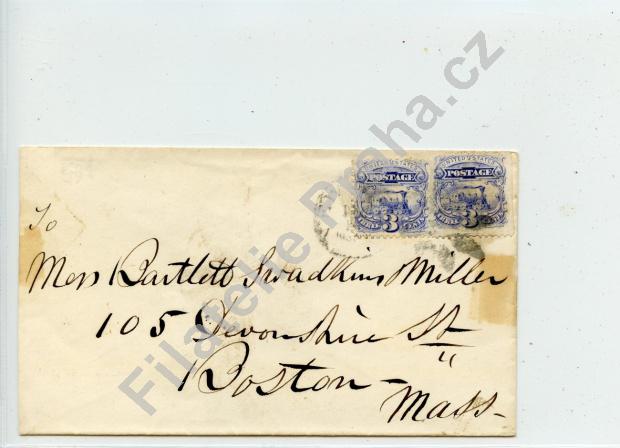 UNITED STATES UNITED STATES
POSTAGE POSTAGE
3 3
To
Mess Bartlett Miller
105 Devonshire St
Boston-
Mass-
Filatelie Praha.cz